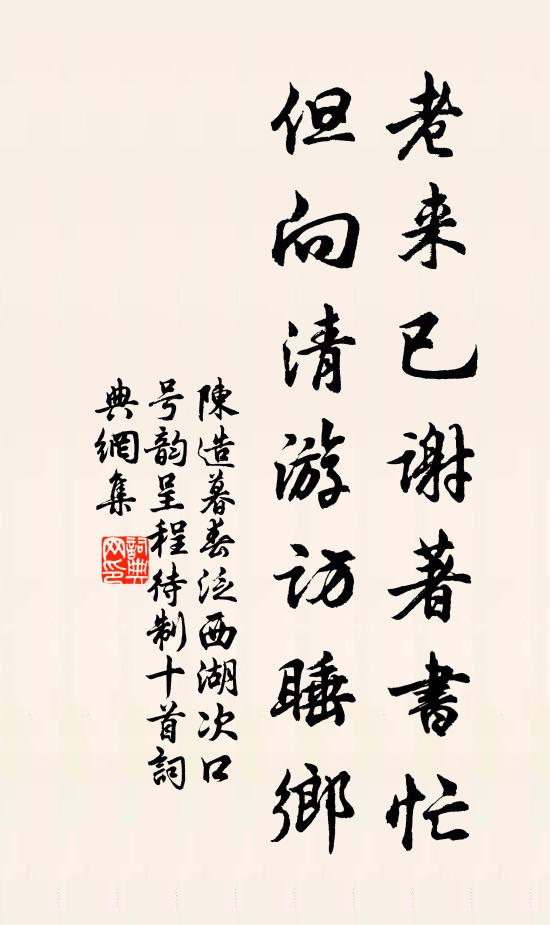 老来已谢著書忙
但向清游访睡鄉
陳造暮春泛西湖次口
号韵呈程待制十首詞
典網集
詞典网印